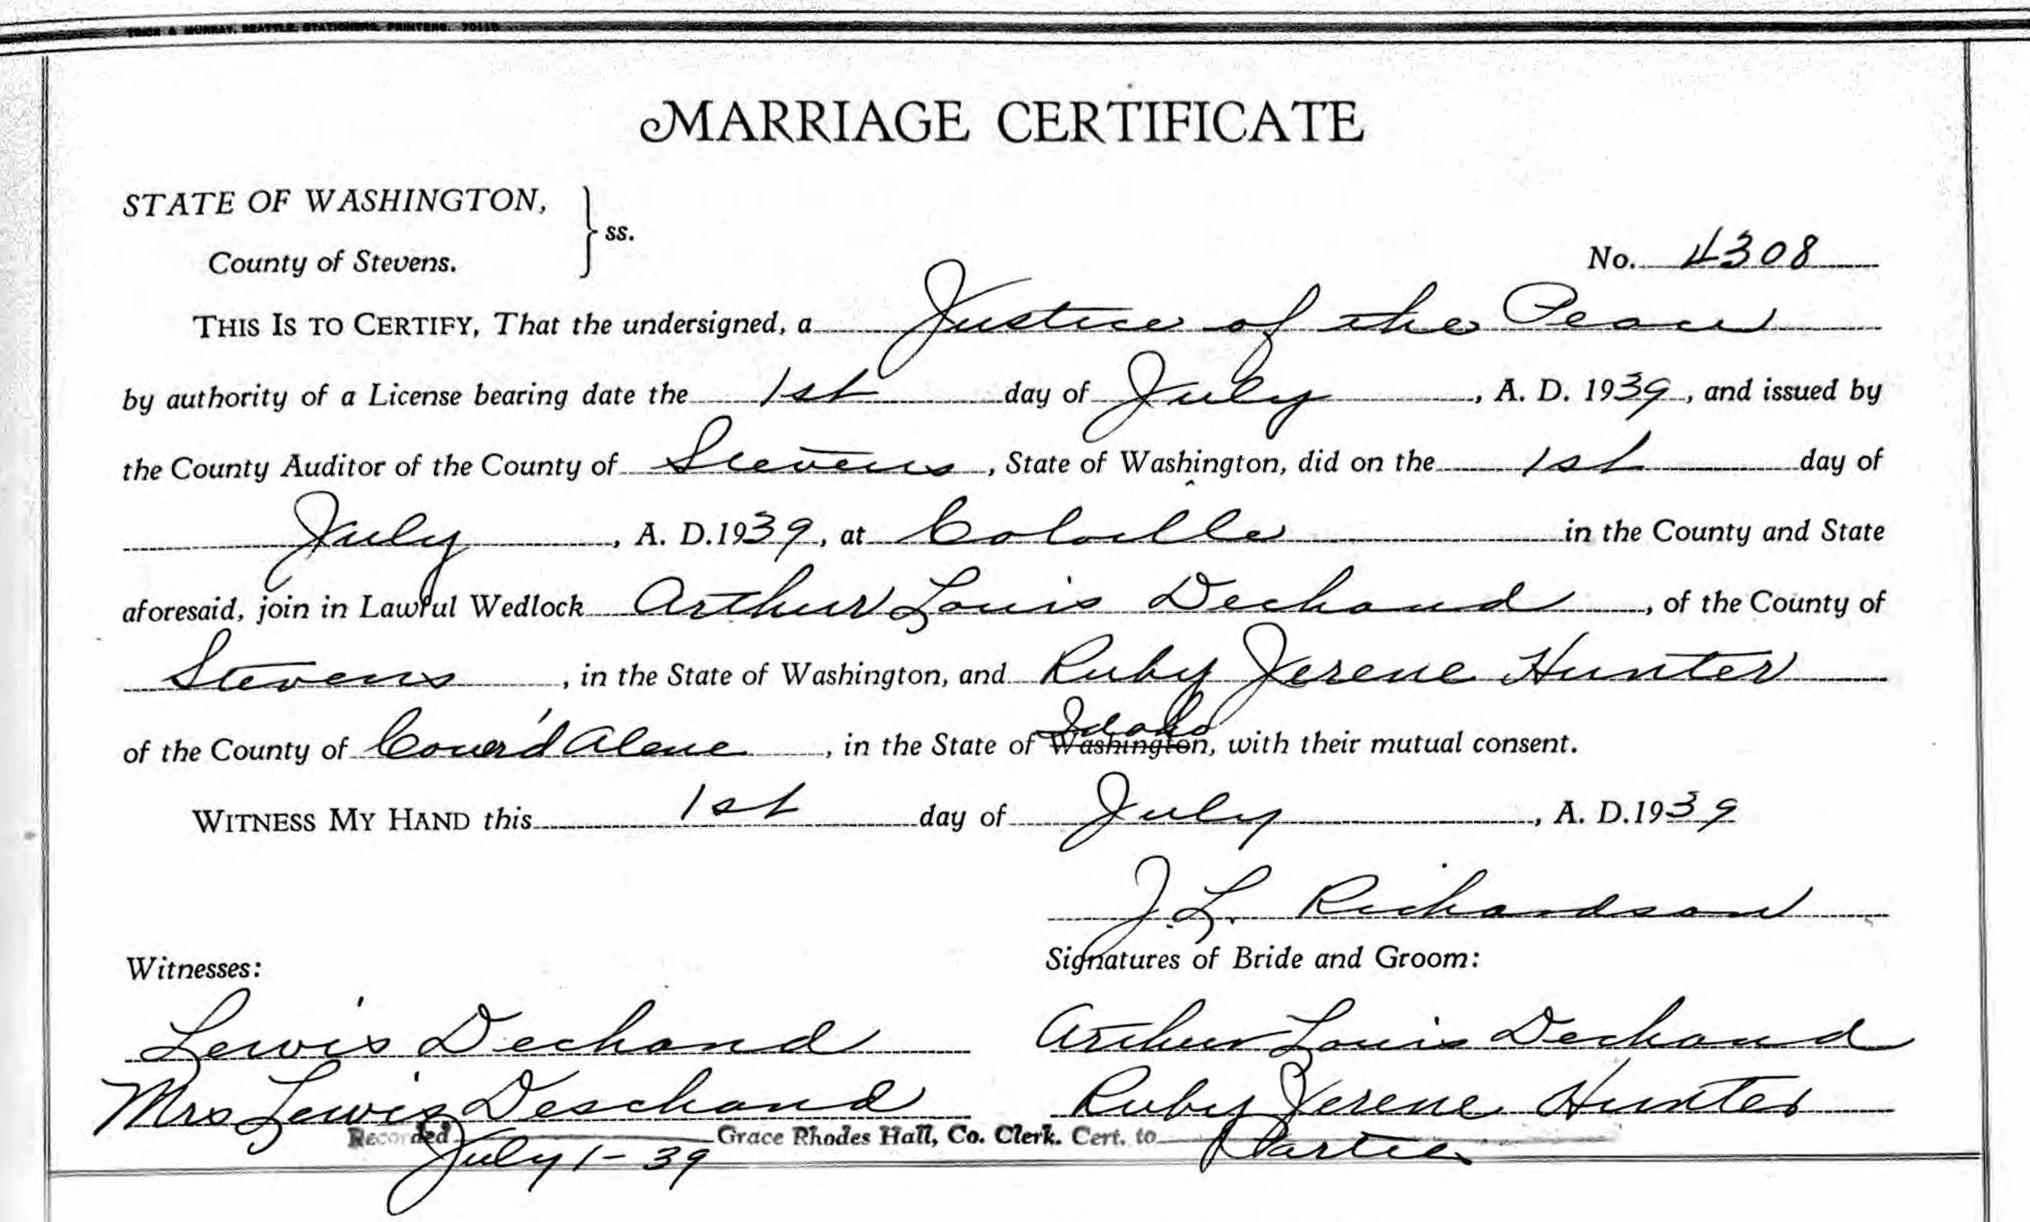 TRICK & MURRAY, SEATTLE, STATIONERS, PRINTERS. 70110
MARRIAGE CERTIFICATE
STATE OF WASHINGTON,
County of Stevens.
ss.
No. 4308
THIS IS TO CERTIFY, That the undersigned, a Justice of the Peace
by authority of a License bearing date the 1st day of July, A. D. 1939, and issued by
the County Auditor of the County of Stevens, State of Washington, did on the 1st day of
July, A. D. 1939, at Colville in the County and State
aforesaid, join in Lawful Wedlock Arthur Louis Dechand, of the County of
Stevens, in the State of Washington, and Ruby Jerene Hunter
of the County of Couer'd Alene, in the State of Washington Idaho, with their mutual consent.
WITNESS MY HAND this 1st day of July, A. D. 1939
J. L. Richardson
Witnesses:
Signatures of Bride and Groom:
Lewis Dechand
Arthur Louis Dechand
Mrs Lewis Deschand
Ruby Jerene Hunter
Recorded July 1-39 Grace Rhodes Hall, Co. Clerk. Cert. to Parties